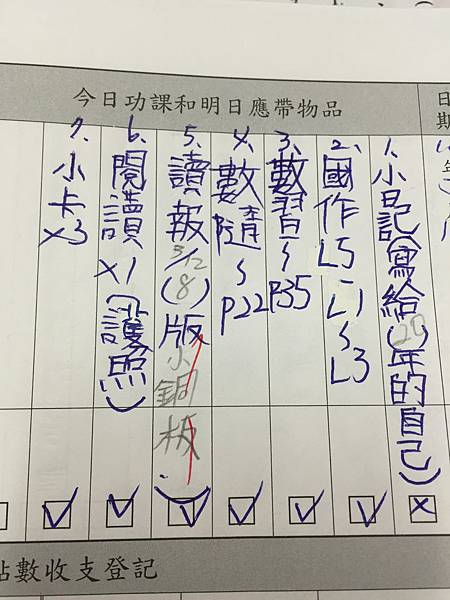 今日功課和明日應帶物品
日期
1、小日記寫給(20)年的自己
2、國作L5-L1~L3
3、數習~P35
4、數隨~P22
5、讀報3/12(8)版(小銅板)
6、閱讀x1(護照)
7、小卡x3
點數收支登記